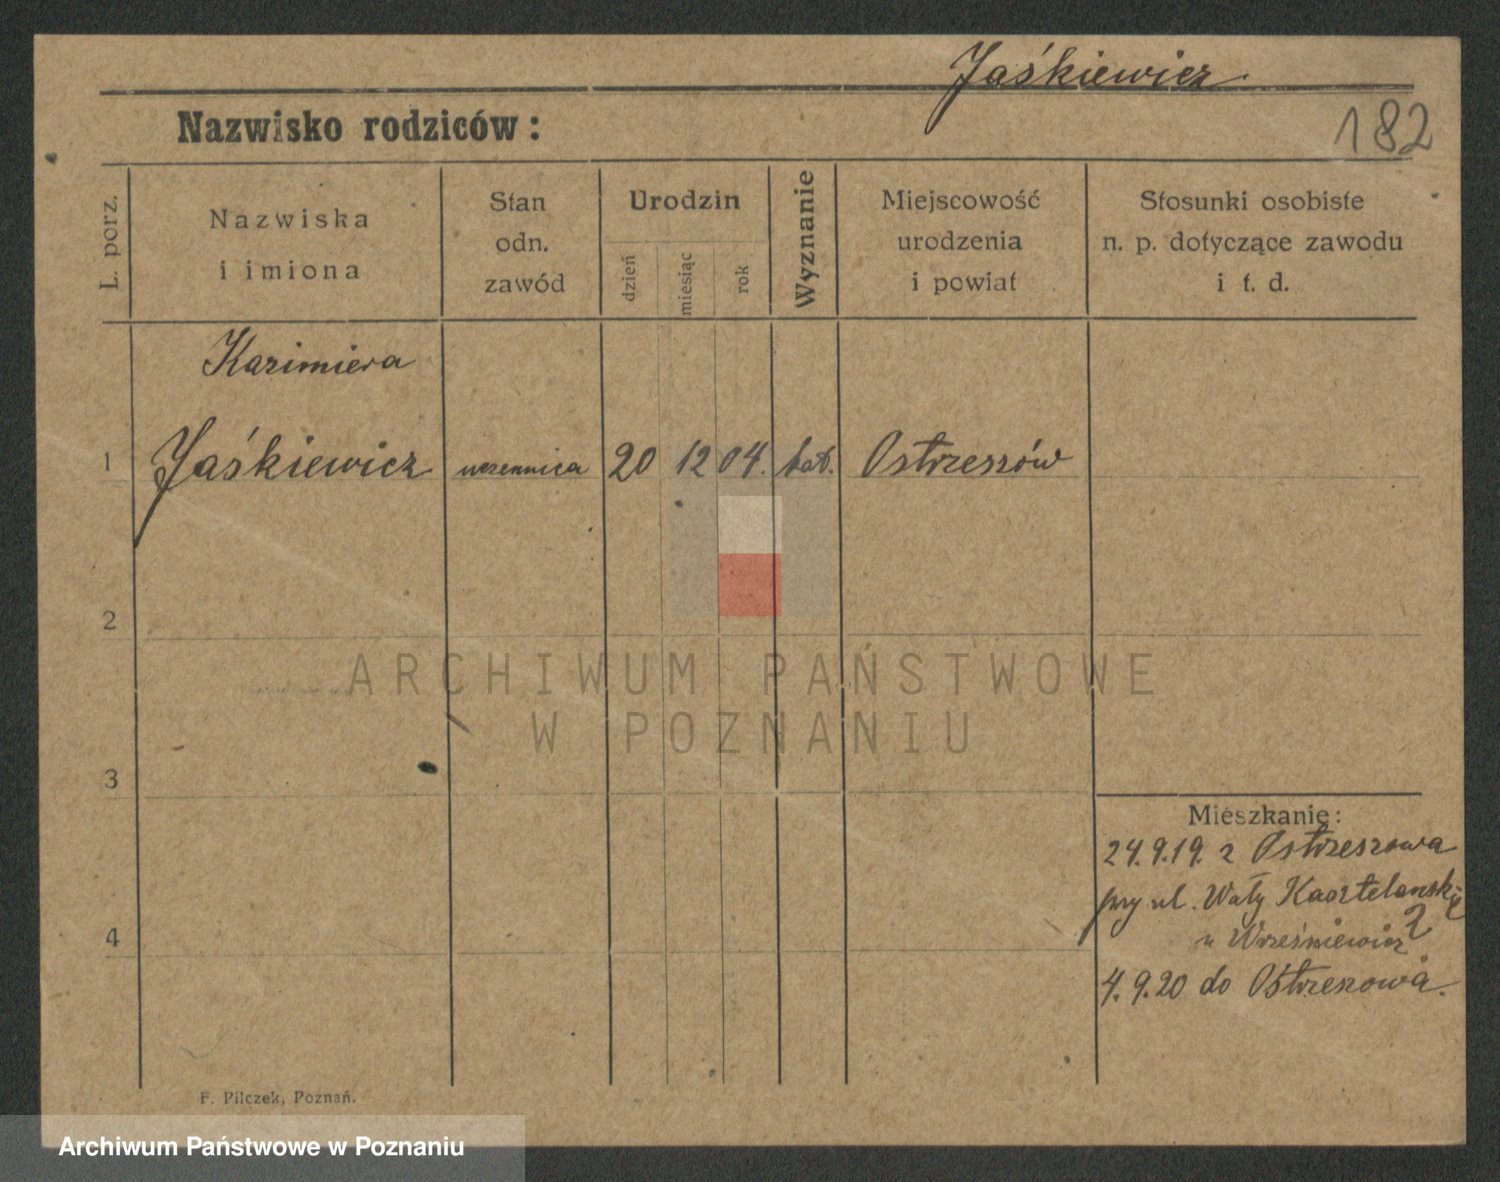 Jaśkiewicz
Nazwisko rodziców:
182
L. porz.
Nazwiska
i imiona
Stan
odn.
zawód
Urodzin
dzień
miesiąc
rok
Wyznanie
Miejscowość
urodzenia
i powiat
Stosunki osobiste
n. p. dotyczące zawodu
i t. d.
Kazimiera
1 Jaśkiewicz uczennica 20 12 04. kat. Ostrzeszów
2
ARCHIWUM PAŃSTWOWE
W POZNANIU
3
Mieszkanie:
24.9.19. z Ostrzeszowa
przy ul. Wały
2
u Wrześniewicz
4
4.9.20 do Ostrzeszowa.
F. Pilczek, Poznań.
Archiwum Państwowe w Poznaniu